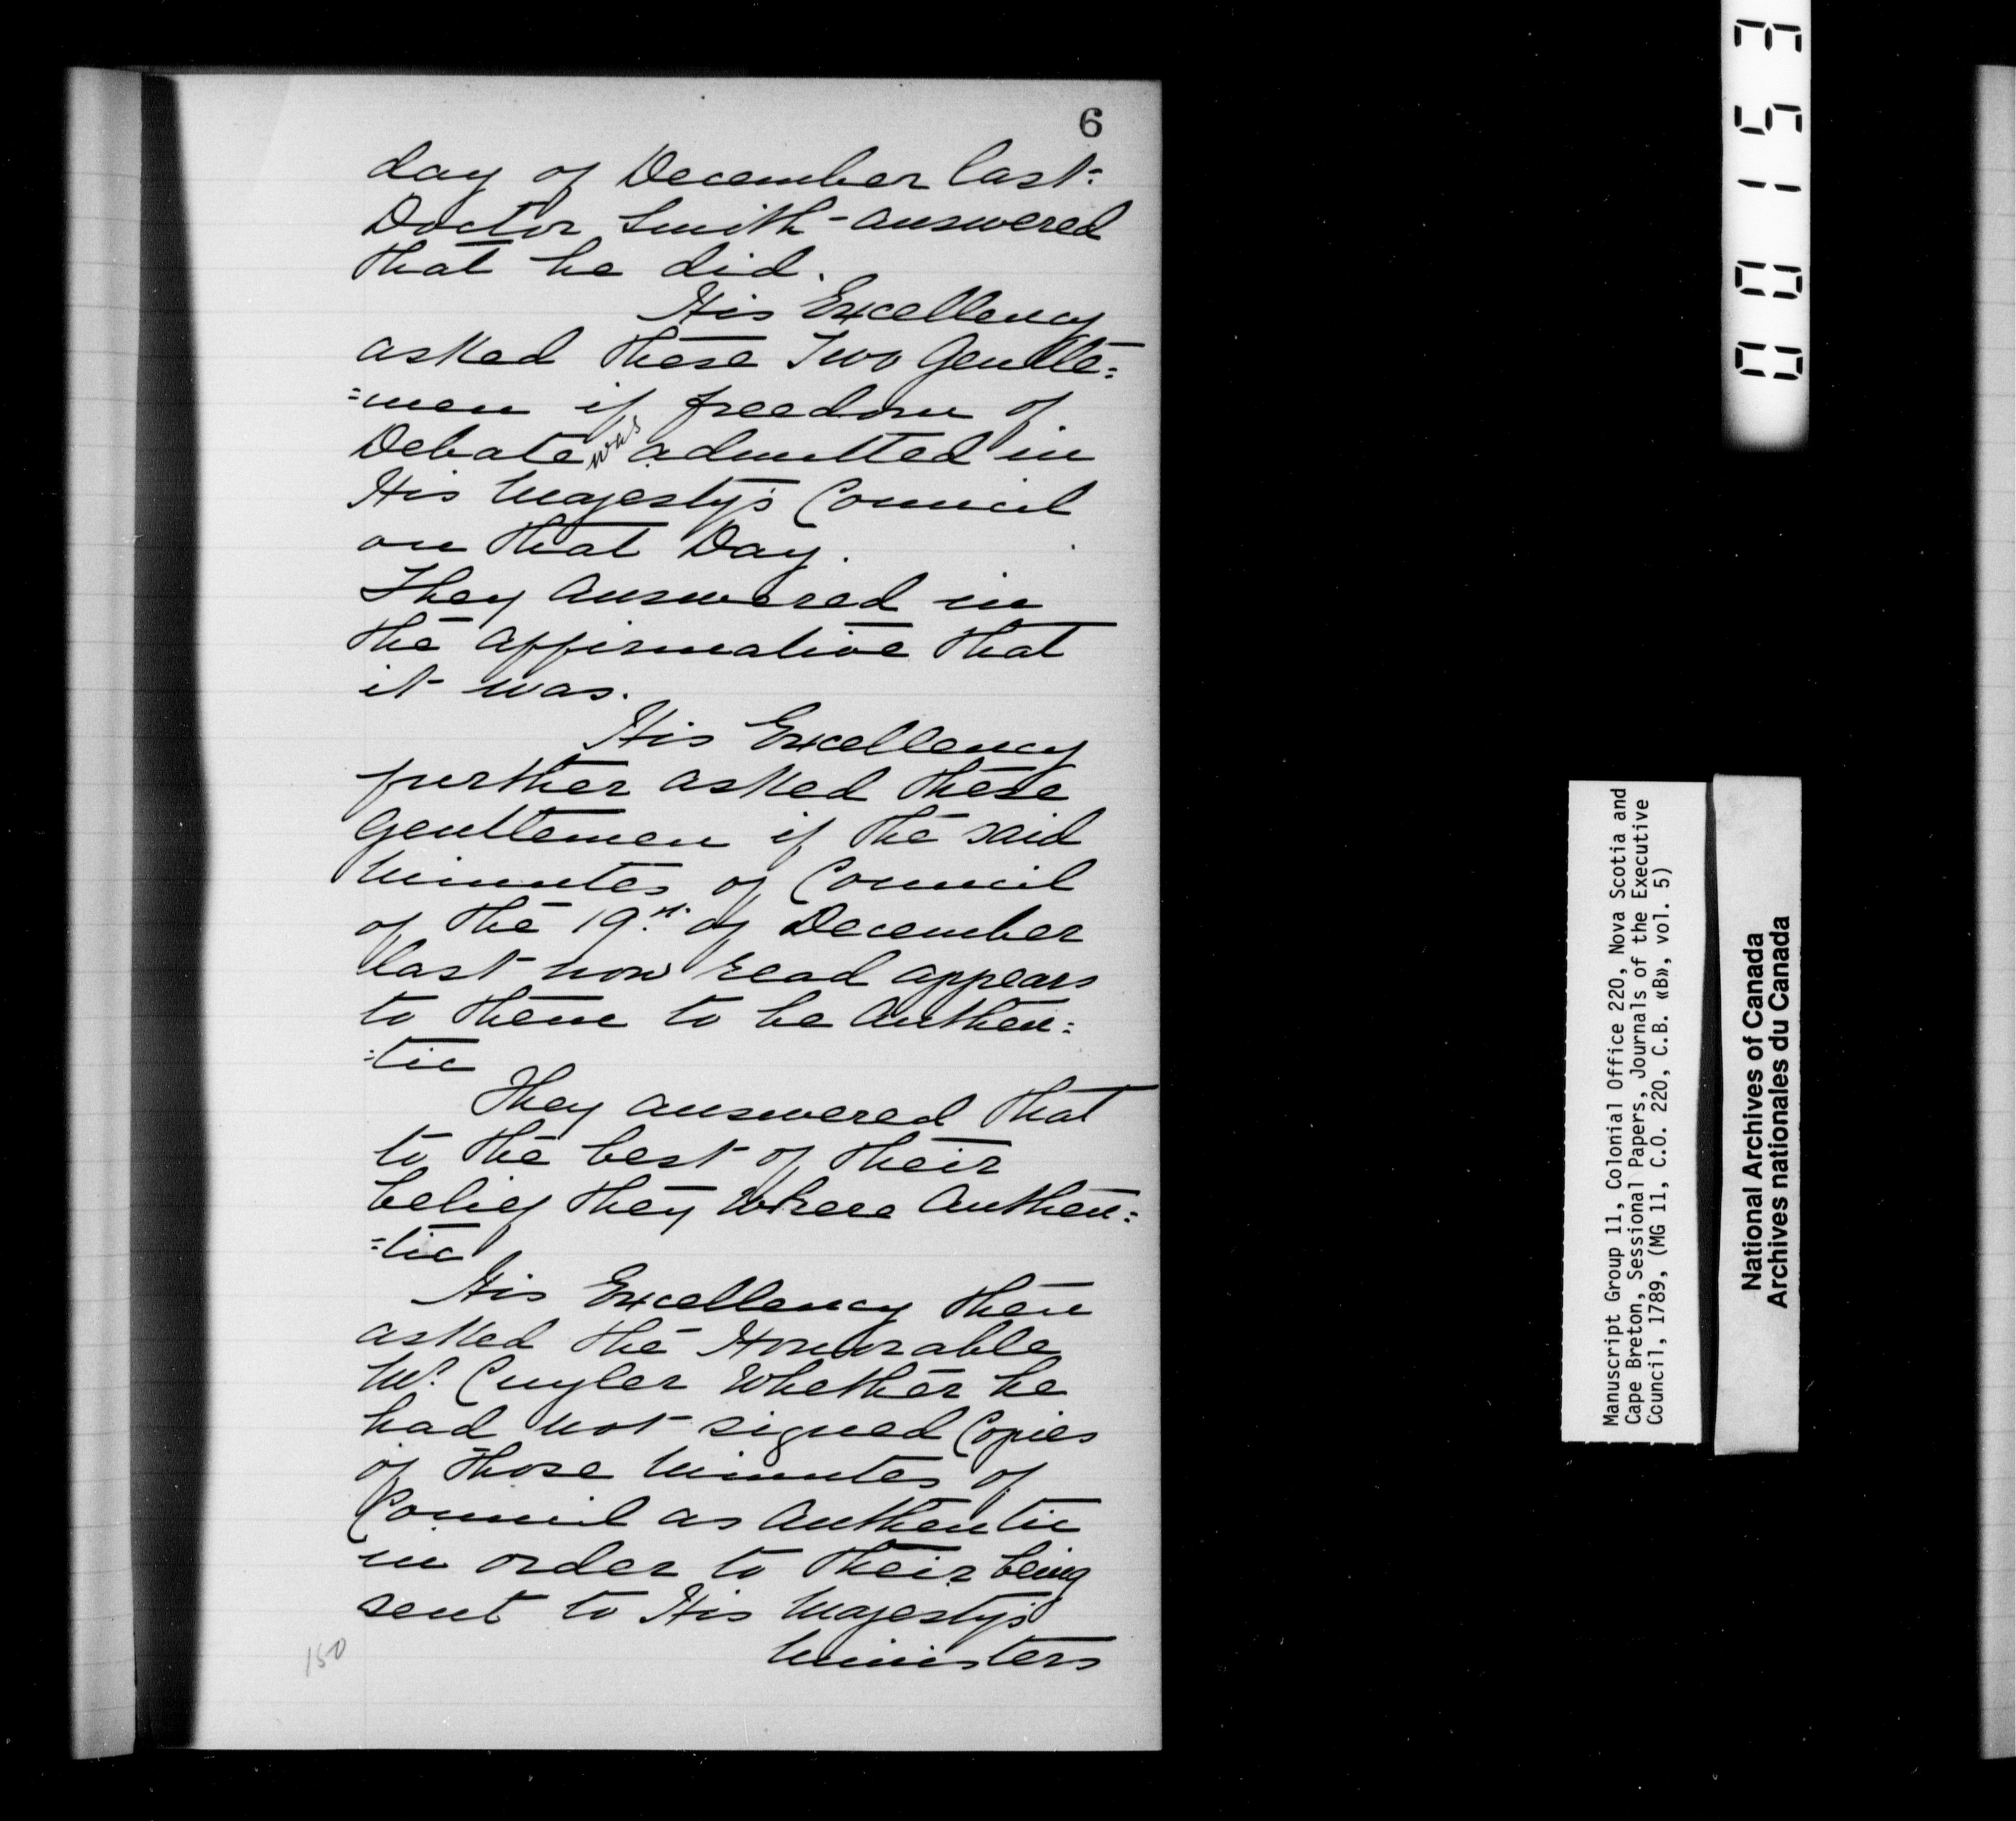 6
day of December last:
Doctor Smith - answered
that he did.
His Excellency
asked these Two Gentle=
=men if freedom of
Debate was admitted in
His Majesty's Council
on that Day.
They answered in
the affirmative that
it was.
His Excellency
further asked these
Gentlemen if the said
Minutes of Council
of the 19th of December
last now read appears
to them to be Authen=
=tic
They answered that
to the best of their
belief they where Authen=
=tic
His Excellency then
asked the Honorable
Mr. Cuyler Whether he
had not signed Copies
of those Minutes of
Council as Authentic
in order to their being
sent to His Majesty's
Ministers
150
00153
Manuscript Group 11, Colonial Office 220, Nova Scotia and
Cape Breton, Sessional Papers, Journals of the Executive
Council, 1789, (MG 11, C.O. 220, C.B. «B», vol. 5)
National Archives of Canada
Archives nationales du Canada